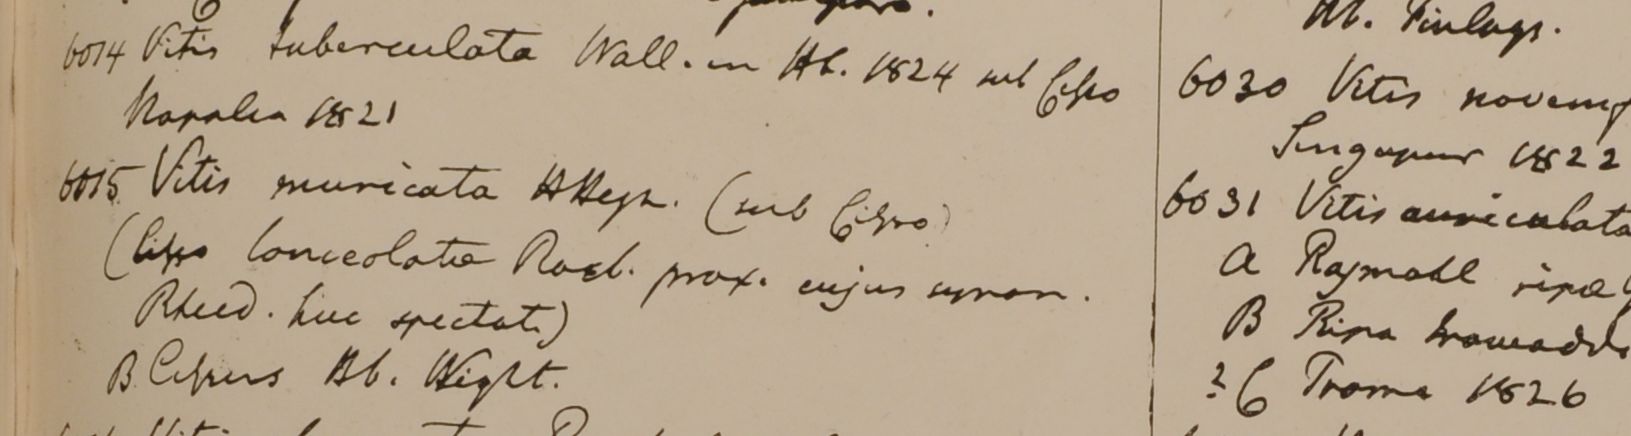 6014 Vitis tuberculata Wall. in Hb. 1824 sub Cisso
Napalia 1821
6015 Vitis muricata HHeyn. (sub Cisso)
(Cisso lanceolatae Roxb. prox. cujus synon.
Rheed. huc spectat)
B Cissus Hb. Wight.
Hb. Finlays.
6030 Vitis
Singapur 1822
6031 Vitis auriculata
a Rajmahl ripae
B Ripa
? C Prome 1826